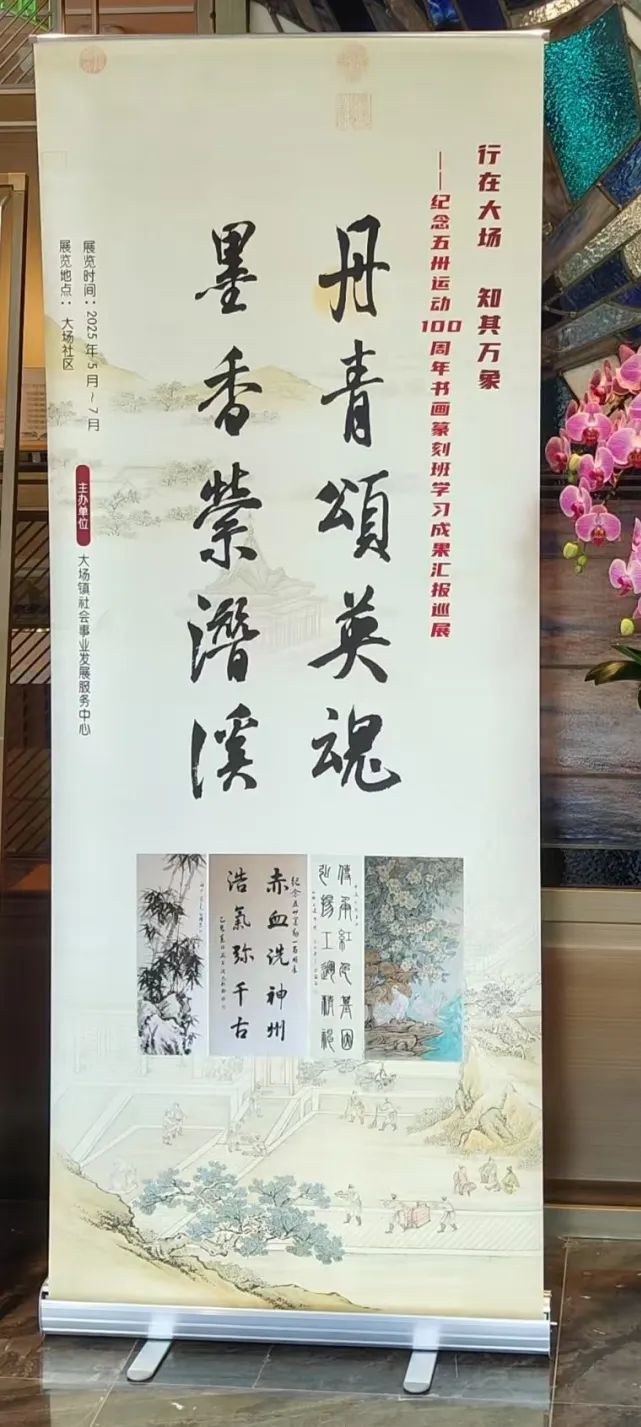 行在大场 知其万象
——纪念五卅运动100周年书画篆刻班学习成果汇报巡展
丹青頌英魂
墨香縈潛溪
展览时间：2025年5月~7月
展览地点：大场社区
主办单位 大场镇社会事业发展服务中心
傳承紅色基因
弘揚工運精神
赤血洗神州
浩氣弥千古